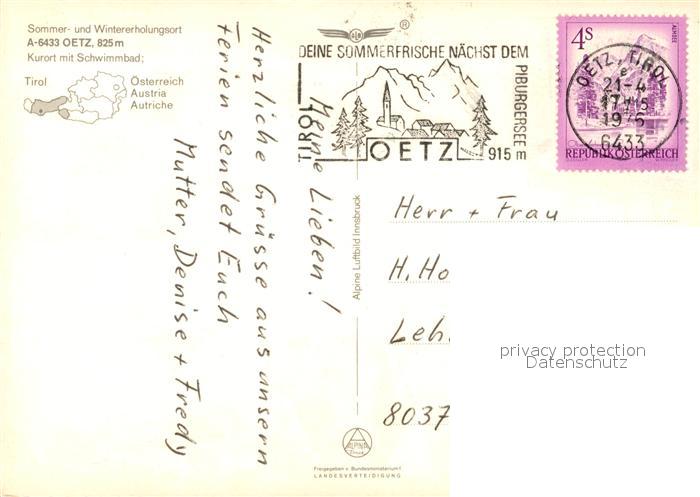 Sommer- und Wintererholungsort
A-6433 OETZ, 825 m
Kurort mit Schwimmbad;
Tirol
Österreich
Austria
Autriche
Meine Lieben!
Herzliche Grüsse aus unsern
Ferien sendet Euch
Mutter, Denise + Fredy
Alpine Luftbild Innsbruck
ALPINA
Freigegeben v. Bundesministerium f.
LANDESVERTEIDIGUNG
®
DEINE SOMMERFRISCHE NÄCHST DEM
PIBURGERSEE
915 m
TIROL
OETZ
4S
ALMSEE
REPUBLIK ÖSTERREICH
OETZ, TIROL
21-4
1976
6433
Herr + Frau
H. Ho
Leh.
8037
privacy protection
Datenschutz